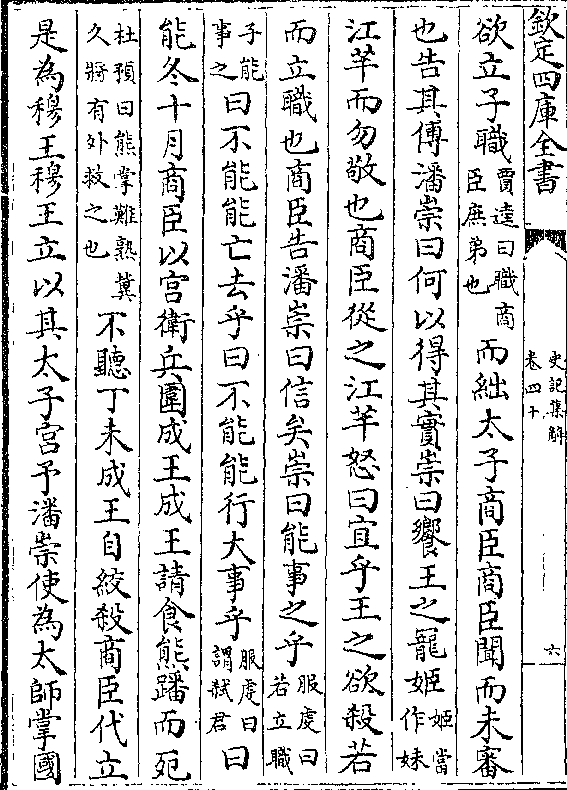 欽定四庫全書
史記集解
卷四十
六
欲立子職賈逵曰職商臣庶弟也而絀太子商臣商臣聞而未審
也告其傅潘崇曰何以得其實崇曰饗王之寵姬姬當作妹
江芈而勿敬也商臣從之江芈怒曰宜乎王之欲殺若
而立職也商臣告潘崇曰信矣崇曰能事之乎服虔曰若立職
子能事之曰不能能亡去乎曰不能能行大事乎服虔曰謂弑君曰
能冬十月商臣以宮衛兵圍成王成王請食熊蹯而死
杜預曰熊掌難熟冀久將有外救之也不聽丁未成王自絞殺商臣代立
是為穆王穆王立以其太子宮予潘崇使為太師掌國